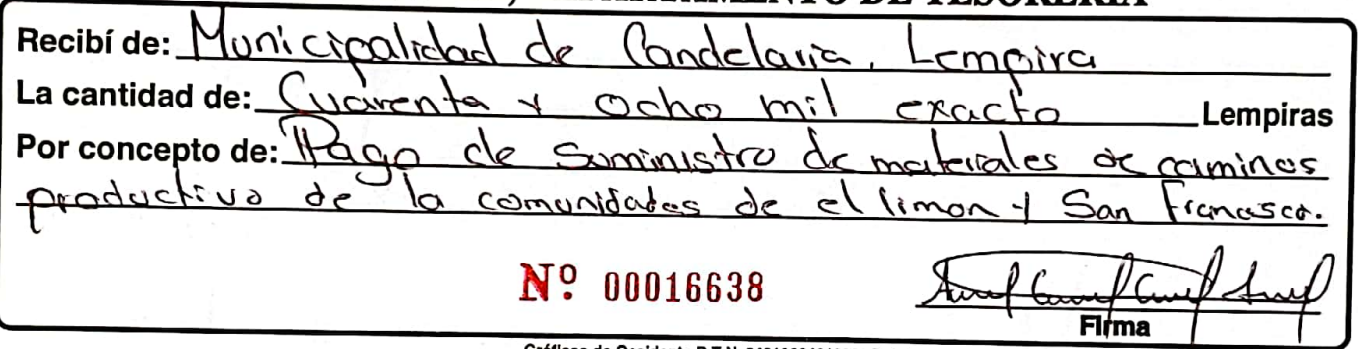 DE TESORERÍA
Recibí de: Municipalidad de Candelaria, Lempira
La cantidad de: Cuarenta y ocho mil exacto Lempiras
Por concepto de: Pago de Suministro de materiales de caminos
productivo de la comunidades de el limon y San Francisco.
Nº 00016638
Firma